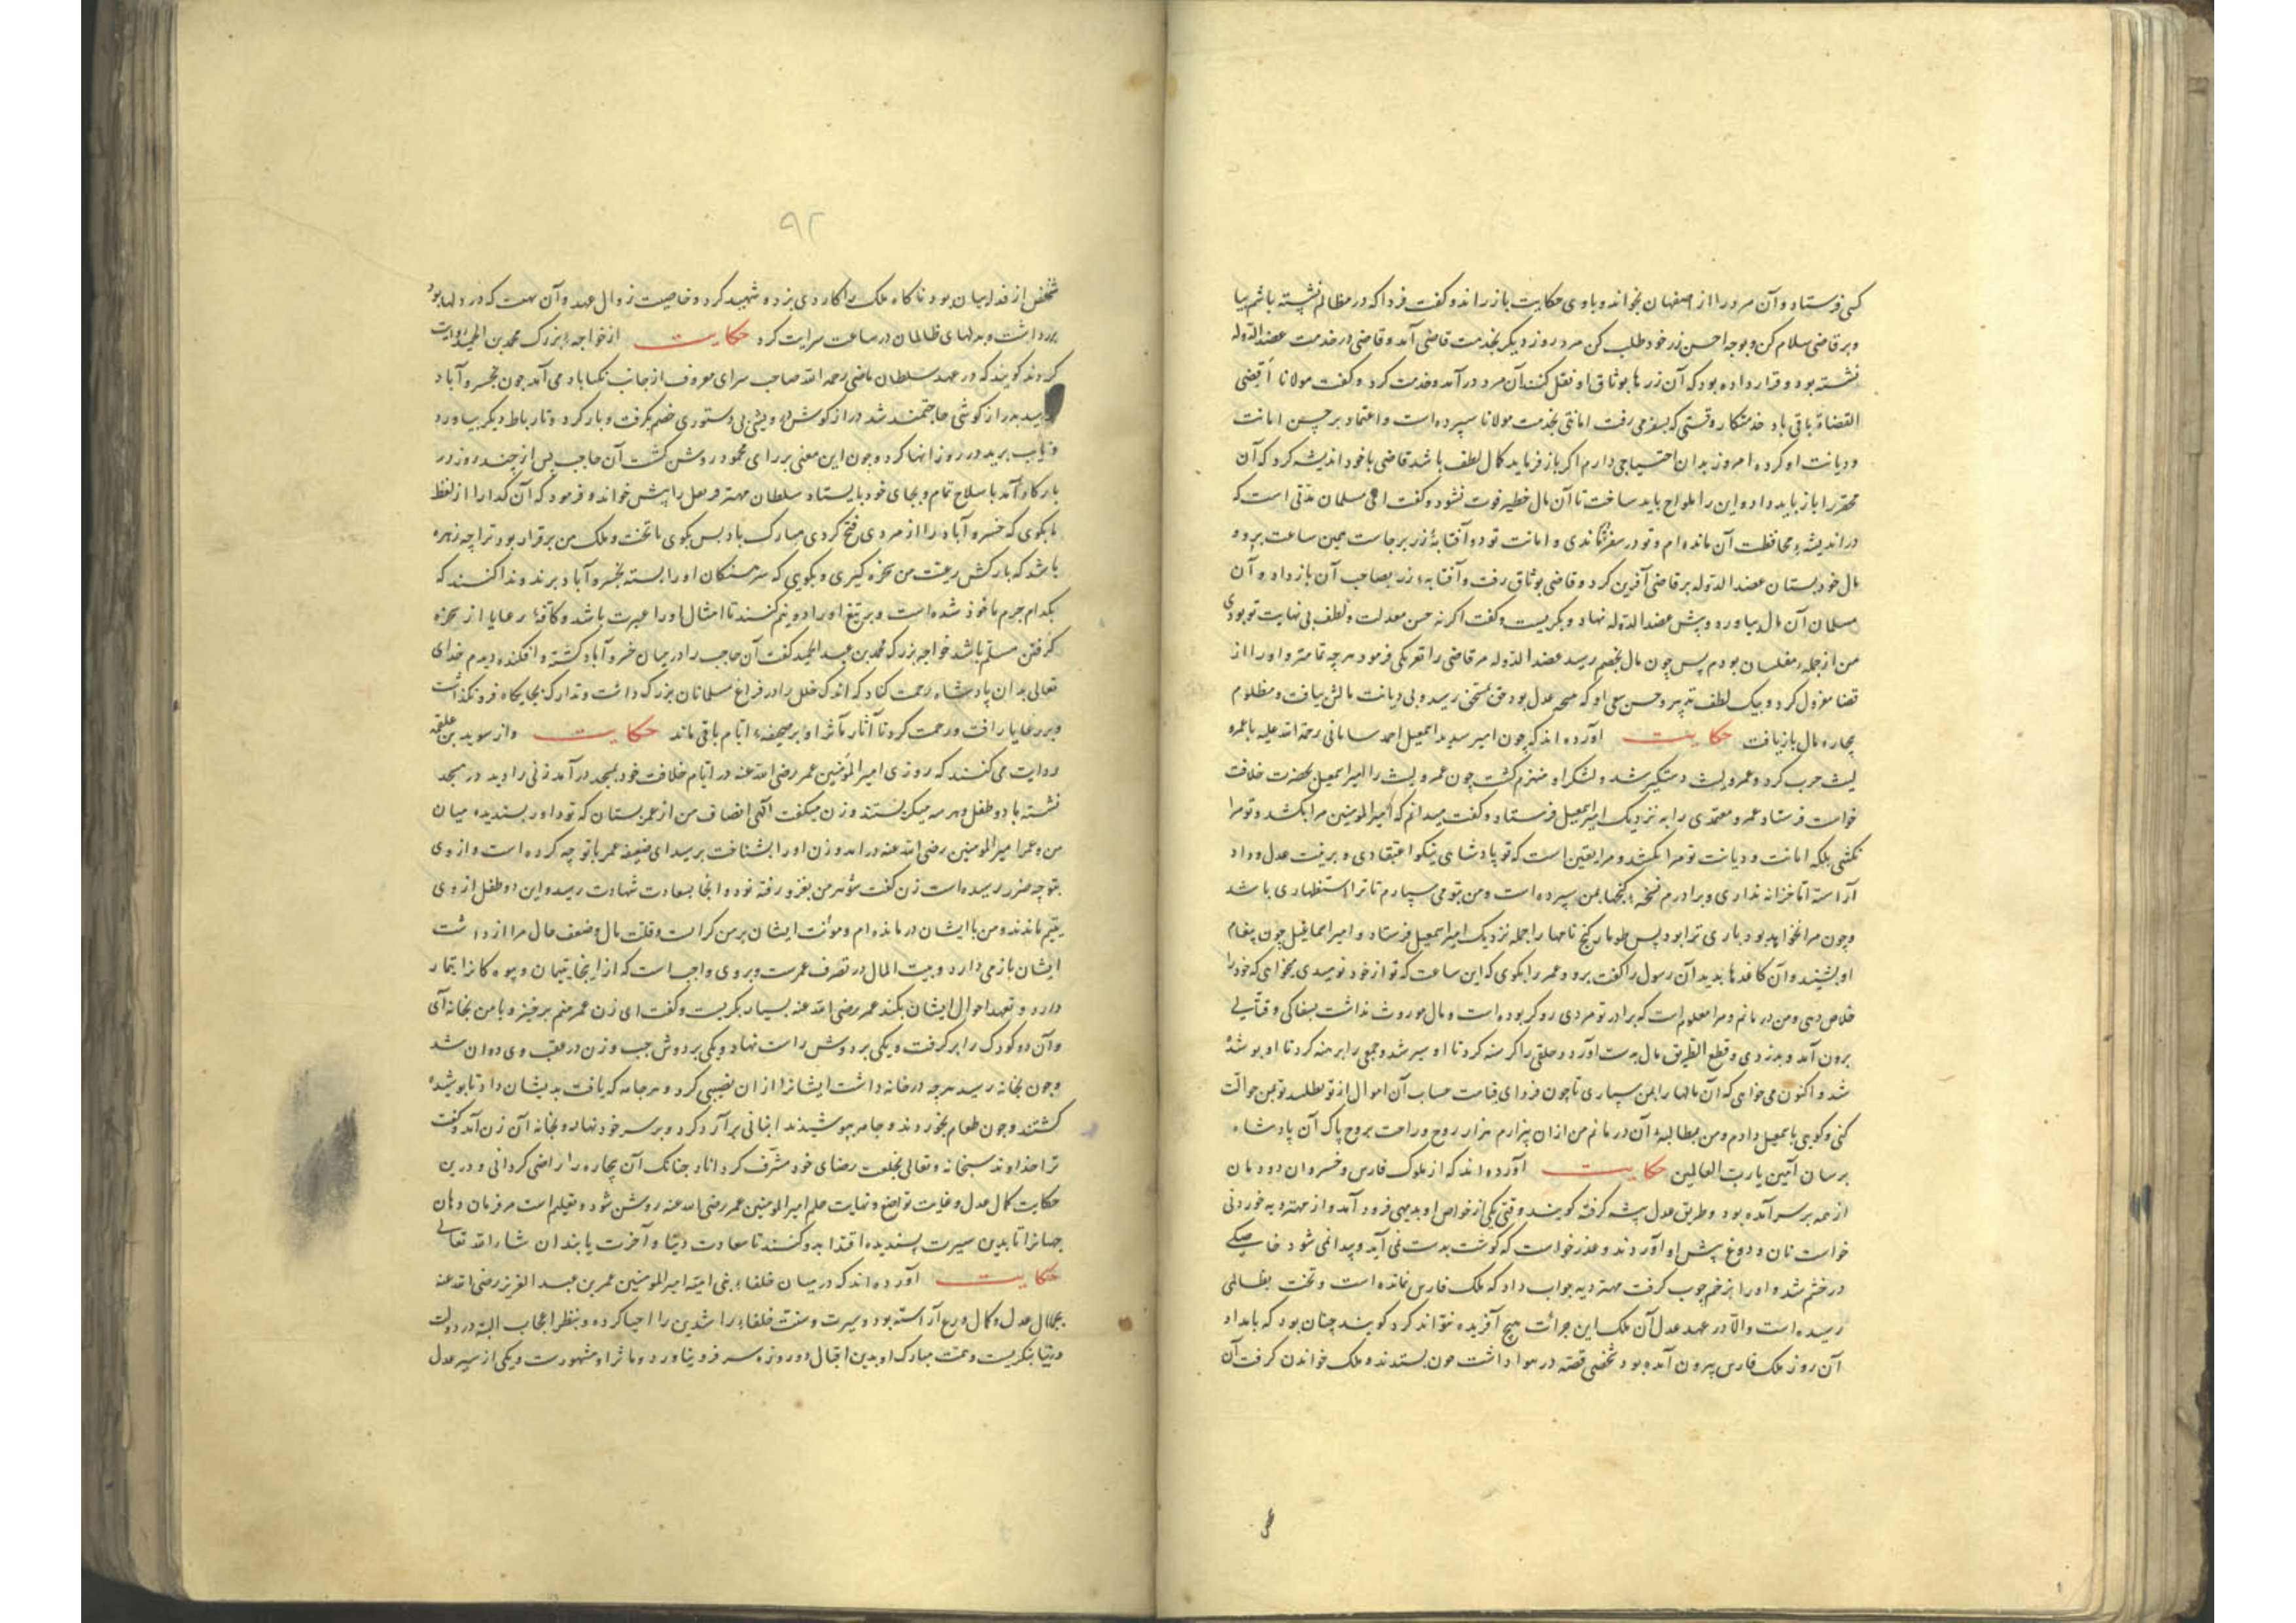 کس فرستاد و آن مرد را از اصفهان بخواند و با وی حکایت باز راند و گفت فردا که در مظالم نشسته باشم بیا
و بر قاضی سلام کن و بوجه احسن زر خود طلب کن مرد روز دیگر بخدمت قاضی آمد و قاضی در خدمت عضدالدوله
نشسته بود و قرار داده بود که آن زرها بوثاق او نقل کنند آن مرد در آمد و خدمت کرد و گفت مولانا اقضی
القضاة باقی باد خدمتکار وقتی که بسفر می رفت امانتی بخدمت مولانا سپرده است و اعتماد بر حسن امانت
و دیانت او کرده امروز بدان احتیاجی دارم اکر باز فرماید کمال لطف باشد قاضی با خود اندیشه کرد که آن
محقر را باز باید داد و این را ملواح باید ساخت تا آن مال خطیر فوت نشود و گفت ای مسلمان مدتی است که
در اندیشهٔ محافظت آن مانده ام و تو در سفر بماندی و امانت تو دو آفتابهٔ زر برجاست همین ساعت برو و
مال خود بستان عضد الدوله بر قاضی آفرین کرد و قاضی بوثاق رفت و آفتابهٔ زر بصاحب آن باز داد و آن
مسلمان آن مال بیاورد و پیش عضد الدوله نهاد و بکریست و گفت اکر نه حسن معدلت و لطف بی نهایت تو بودی
من از جملهٔ مفلسان بودم پس چون مال بخصم رسید عضد الدوله مر قاضی را تعریکی فرمود هر چه تمامتر و او را از
قضا معزول کرد و بیک لطف تدبیر و حسن سعی او که صحهٔ عدل بود حق بمستحق رسید و بی دیانت مالش یافت و مظلوم
بیچاره مال باز یافت حکایت آورده اند که چون امیر سدید اسمعیل احمد سامانی رحمة الله علیه با عمرو
لیث حرب کرد و عمرو لیث دستکیر شد و لشکر او منهزم کشت چون عمرو لیث را امیر اسمعیل بحضرت خلافت
خواست فرستاد عمرو معتمدی را به نزدیک امیر اسمعیل فرستاد و گفت میدانم که امیر المومنین مرا بکشد و تو مرا
نکشی بلکه امانت و دیانت تو مرا بکشد و مرا یقین است که تو پادشاهی نیکو اعتقادی و بزینت عدل و داد
آراسته اما خزانه نداری و برادرم نسخهٔ کنجها بمن سپرده است و من بتو می سپارم تا ترا استظهاری باشد
و چون مرا نخواهد بود باری ترا بود پس طومار کنج نامها را جمله نزدیک امیر اسمعیل فرستاد و امیر اسمعیل چون پیغام
او بشنید و آن کاغذها بدید آن رسول را گفت برو و عمرو را بکوی که این ساعت که تو از خود نومیدی میخواهی که خود را
خلاص دهی و من در مانم و مرا معلوم است که برادر تو مردی رویگر بوده است و مال موروث نداشت بسفاکی و قتالی
برون آمد و بدزدی و قطع الطریق مال بدست آورد و خلقی را گرسنه کرد تا او سیر شد و جمعی را برهنه کرد تا او پوشیده
شد و اکنون می خواهی که آن مالها را بمن سپاری تا چون فردای قیامت حساب آن اموال از تو طلبند تو بمن حوالت
کنی و کویی باسمعیل دادم و من بمطالبهٔ آن در مانم من از ان بیزارم هزار روح و راحت بروح پاک آن پادشاه
برسان آمین یا رب العالمین حکایت آورده اند که از ملوک فارس و خسروان دودمان
از همه بر سر آمده بود و طریق عدل پیشه کرفته کویند وقتی یکی از خواص او بدیهی فرود آمد و از مهتر دیه خوردنی
خواست نان و دوغ پیش او آوردند و عذر خواست که گوشت بدست نمی آید و پیدا نمی شود خاصکی
در خشم شد و او را زخم چوب کرفت مهتر دیه جواب داد که ملک فارس نمانده است و تخت بظالمی
رسیده است والا در عهد عدل آن ملک این جرأت هیچ آفریده نتواند کرد کویند چنان بود که بامداد
آن روز ملک فارس بیرون آمده بود شخصی قصه در هوا داشت چون بستدند و ملک خواندن کرفت آن
۹۲
شخص از فدائیان بود ناکاه ملک را کاردی بزد و شهید کرد و خاصیت زوال عهد و آن نهمت که در دلها بود
برداشت و بدلهای ظالمان در ساعت سرایت کرد حکایت از خواجهٔ بزرک محمد بن عبد الحمید روایت
کردند کویند که در عهد سلطان ماضی رحمه الله صاحب سرای معروف از جانب تکیاباد می آمد چون بخسروآباد
رسید بدرازکوشی حاجتمند شد درازکوش درویشی بی دستوری خصم بکرفت و بار کرد و تا رباط دیکر بیاورد
و نایب برید در روز انها کرد و چون این معنی بر رای محمود روشن کشت آن حاجب پس از چند روز در
بارکاه آمد با سلاح تمام و بجای خود بایستاد سلطان مهتر فرهل را پیش خواند و فرمود که آن کدا را از لفظ
ما بکوی که خسروآباد را از مردی فتح کردی مبارک باد پس بکوی با تخت و ملک من برقرار بود ترا چه زهره
باشد که بارکش رعیت من سخره کیری و بکوی که سرهنکان او را بسته بخسروآباد برند و ندا کنند که
بکدام جرم ماخوذ شده است و بر تیغ او را دو نیم کنند تا امثال او را عبرت باشد و کافهٔ رعایا از سخره
کرفتن مسلم باشد خواجه بزرک محمد بن عبد الحمید گفت آن حاجب را در میان خسروآباد کشته و افکنده دیدم خدای
تعالی بدان پادشاه رحمت کناد که اندک خللی را در فراغ مسلمانان بزرک داشت و تدارک بجایکاه فرو نکذاشت
و بر رعایا رافت و رحمت کرد تا آثار مآثر او بر صحیفهٔ ایام باقی ماند حکایت و از سوید بن علقمه
روایت می کنند که روزی امیر المؤمنین عمر رضی الله عنه در ایام خلافت خود بمسجد در آمد زنی را دید در مسجد
نشسته با دو طفل و هر سه میکریستند و زن میکفت الهی انصاف من از عمر بستان که تو داور بسندیده میان
من و عمر امیر المومنین رضی الله عنه در آمد و زن او را بشناخت پرسید ای ضعیفه عمر با تو چه کرده است و از وی
بتو چه ضرر رسیده است زن گفت شوهر من بغزو رفته بود و آنجا بسعادت شهادت رسید و این دو طفل از وی
یتیم ماندند و من با ایشان در مانده ام و مؤنت ایشان بر من کرانست و قلت مال و ضعف حال مرا از داشت
ایشان باز می دارد و بیت المال در تصرف عمر است و بر وی واجب است که از اینجا یتیمان و بیوه کانرا تیمار
دارد و تعهد احوال ایشان بکند عمر رضی الله عنه بسیار بکریست و گفت ای زن عمر منم برخیز و با من بخانه آی
و آن دو کودک را بر کرفت و یکی بر دوش راست نهاد و یکی بر دوش چپ و زن در عقب وی دوان شد
و چون بخانه رسید هر چه در خانه داشت ایشانرا از ان نصیبی کرد و هر جامه که یافت بدیشان داد تا پوشیده
کشتند و چون طعام بخوردند و جامه پوشیدند انبانی پر آرد کرد و بر سر خود نهاد و بخانه آن زن آمد و گفت
ترا خداوند سبحانه و تعالی بخلعت رضای خود مشرف کرداناد چنانک آن بیچاره را راضی کردانی و درین
حکایت کمال عدل و غایت تواضع و نهایت حلم امیر المومنین عمر رضی الله عنه روشن شود و تعلیم است مر فرمان دهان
جهانرا تا بدین سیرت پسندیده اقتدا بدو کنند تا سعادت دنیا و آخرت یابند ان شاء الله تعالی
حکایت آورده اند که در میان خلفاء بنی امیه امیر المومنین عمر بن عبد العزیز رضی الله عنه
بجمال عدل و کمال ورع آراسته بود و سیرت و سنت خلفاء راشدین را احیا کرده و بنظر اعجاب البته در دولت
دنیا ننکریست و همت مبارک او بدین اقبال دو روزه سر فرو نیاورد و مآثر او مشهورست و یکی از سیر عدل